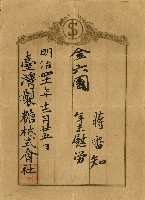 蔣雪知
年末慰労
金六圓
明治四十一年十二月廿五日
臺灣製糖株式會社